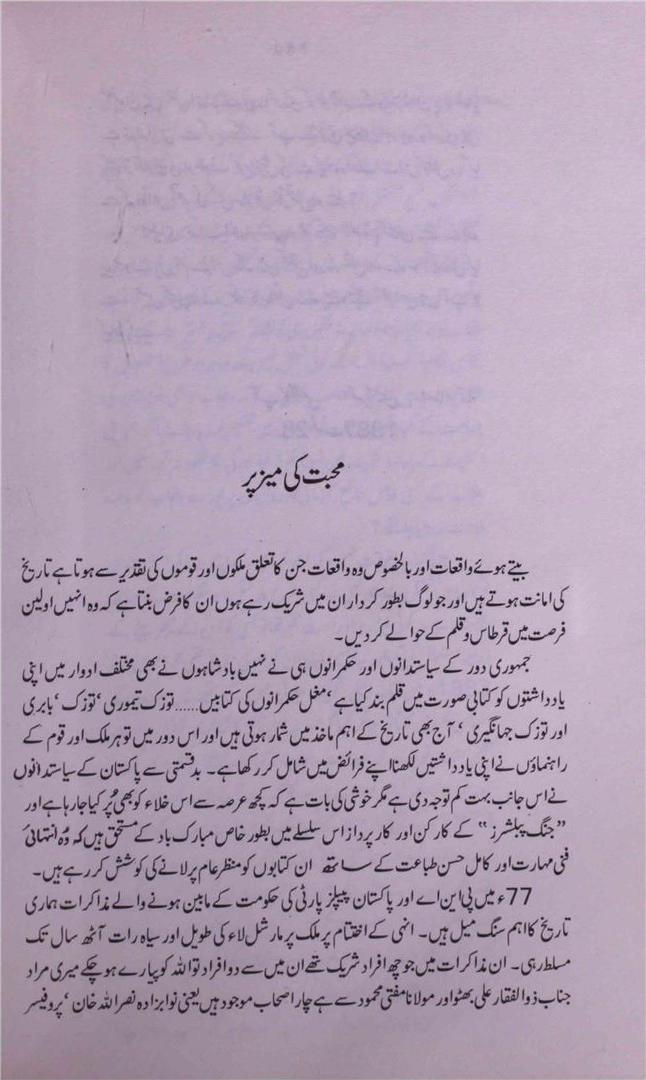 محبت کی میز پر
بیتے ہوئے واقعات اور بالخصوص وہ واقعات جن کا تعلق ملکوں اور قوموں کی تقدیر سے ہوتا ہے تاریخ
کی امانت ہوتے ہیں اور جو لوگ بطور کردار ان میں شریک رہے ہوں ان کا فرض بنتا ہے کہ وہ انہیں اولین
فرصت میں قرطاس و قلم کے حوالے کر دیں۔
جمہوری دور کے سیاستدانوں اور حکمرانوں ہی نے نہیں بادشاہوں نے بھی مختلف ادوار میں اپنی
یادداشتوں کو کتابی صورت میں قلم بند کیا ہے ‘ مغل حکمرانوں کی کتابیں...... توزک تیموری ‘ توزک ‘ بابری
اور توزک جہانگیری ‘ آج بھی تاریخ کے اہم ماخذ میں شمار ہوتی ہیں اور اس دور میں تو ہر ملک اور قوم کے
راہنماؤں نے اپنی یادداشتیں لکھنا اپنے فرائض میں شامل کر رکھا ہے۔ بدقسمتی سے پاکستان کے سیاستدانوں
نے اس جانب بہت کم توجہ دی ہے مگر خوشی کی بات ہے کہ کچھ عرصہ سے اس خلاء کو بھی پُر کیا جا رہا ہے اور
”جنگ پبلشرز“ کے کارکن اور کارپرداز اس سلسلے میں بطور خاص مبارک باد کے مستحق ہیں کہ وُہ انتہائی
فنی مہارت اور کامل حسن طباعت کے ساتھ ان کتابوں کو منظر عام پر لانے کی کوشش کر رہے ہیں۔
77ء میں پی این اے اور پاکستان پیپلز پارٹی کی حکومت کے مابین ہونے والے مذاکرات ہماری
تاریخ کا اہم سنگ میل ہیں۔ انہی کے اختتام پر ملک پر مارشل لاء کی طویل اور سیاہ رات آٹھ سال تک
مسلط رہی۔ ان مذاکرات میں جو چھ افراد شریک تھے ان میں سے دو افراد تو اللہ کو پیارے ہو چکے میری مراد
جناب ذوالفقار علی بھٹو اور مولانا مفتی محمود سے ہے چار اصحاب موجود ہیں یعنی نوابزادہ نصر اللہ خان ‘ پروفیسر